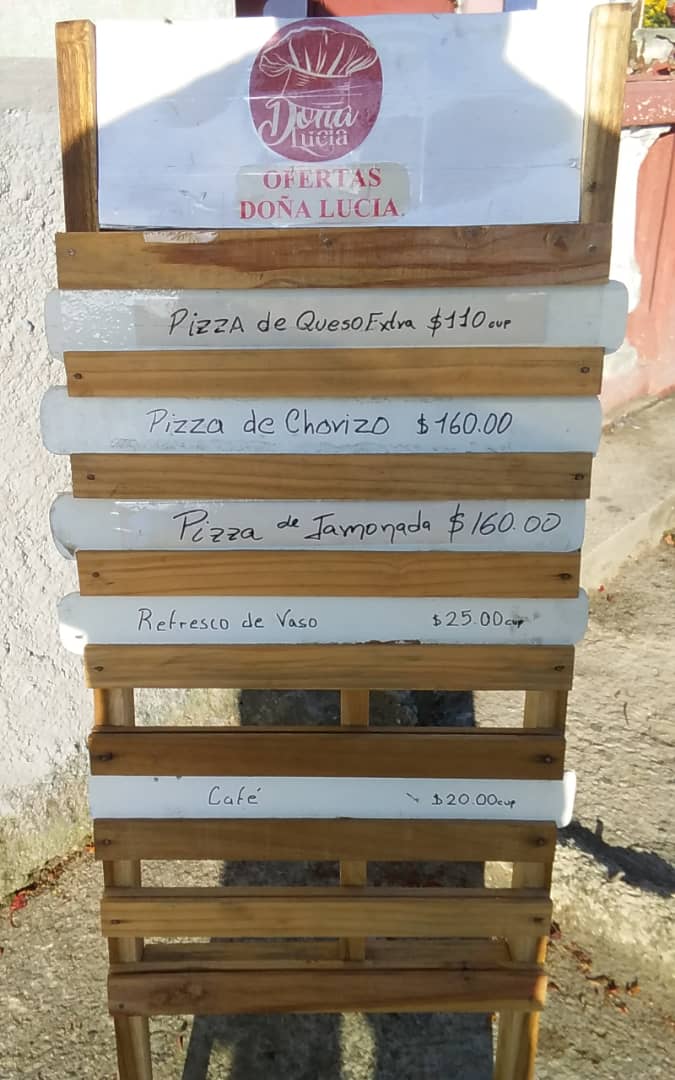 Doña
Lucia
OFERTAS
DOÑA LUCIA.
PizzA de Queso Extra $110 cup
Pizza de Chorizo $160.00
Pizza de Jamonada $160.00
Refresco de Vaso $25.00 cup
Café $20.00 cup